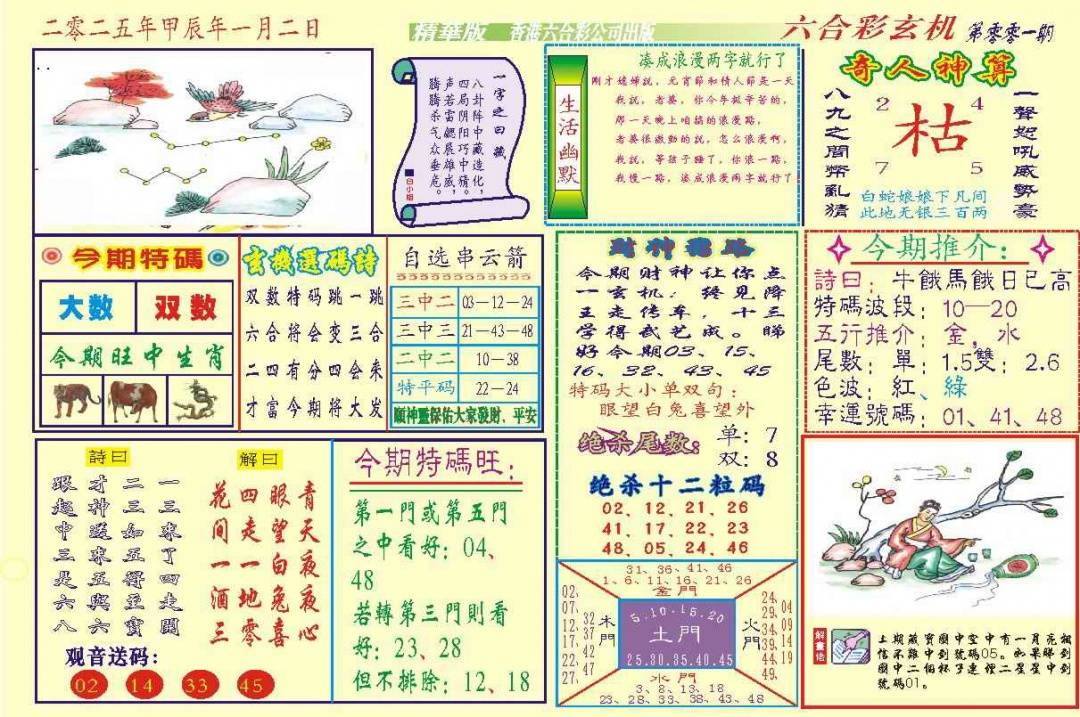 二零二五年甲辰年一月二日
精華版 香港六合彩公司出版
六合彩玄机 第零零一期
一字之曰藏
八卦阵中藏造化
四局阴阳巧中猜
声若雷鳃晨雄威
腾腾杀气众垂危
白小姐
凑成浪漫两字就行了
生活幽默
刚才媳婦説，元宵節和情人節是一天
我説，老婆，你今年挺辛苦的，
那一天晚上咱搞的浪漫點，
老婆很激動的説，怎么浪漫啊，
我説，等孩子睡了，你浪一點，
我慢一點，凑成浪漫兩字就行了
奇人神算
八九之間幣亂猜
2 4
枯
7 5
一聲恕吼威勢豪
白蛇娘娘下凡间
此地无银三百两
今期特碼
大数 双数
今期旺中生肖
玄機選碼詩
双数特码跳一跳
六合将会变三合
二四有分四会来
才富今期将大发
自选串云箭
三中二 03—12—24
三中三 21—43—48
二中二 10—38
特平码 22—24
順神靈保佑大家發財、平安
今期财神让你点
一玄机：终见降
王走传车，十三
学得武艺成。睇
好今期03、15、
16、32、43、45
特码大小单双句：
眼望白兔喜望外
绝杀尾数： 单：7
双：8
绝杀十二粒码
02、12、21、26
41、17、22、23
48、05、24、46
今期推介：
詩曰：牛餓馬餓日已高
特碼波段：10—20
五行推介：金，水
尾數：單：1.5雙：2.6
色波：紅、綠
幸運號碼：01、41、48
詩曰
一三來了四走開
二三如五得至寶
才神送來五與六
跟起中三是六八
解曰
青天夜夜心
眼望白兔喜
四走一地零
花间一酒三
观音送码：
02 14 33 45
今期特碼旺：
第一門或第五門
之中看好：04、
48
若轉第三門則看
好：23、28
但不排除：12、18
31、36、41、46
1、6、11、16、21、26
金門
02、07、12、17、22、27、
32、37、42、47
木門
5.10.15.20
土門
25.30.35.40.45
火門
24、29、34、39、44、49、
04、09、14、19
水門
3、8、13、18
23、28、33、38、43、48
解畫侍
上期藏寶圖中空中有一月亮相
信不難中到號碼05。如果睇到
圖中二個杯子連煙二星星中到
號碼01。